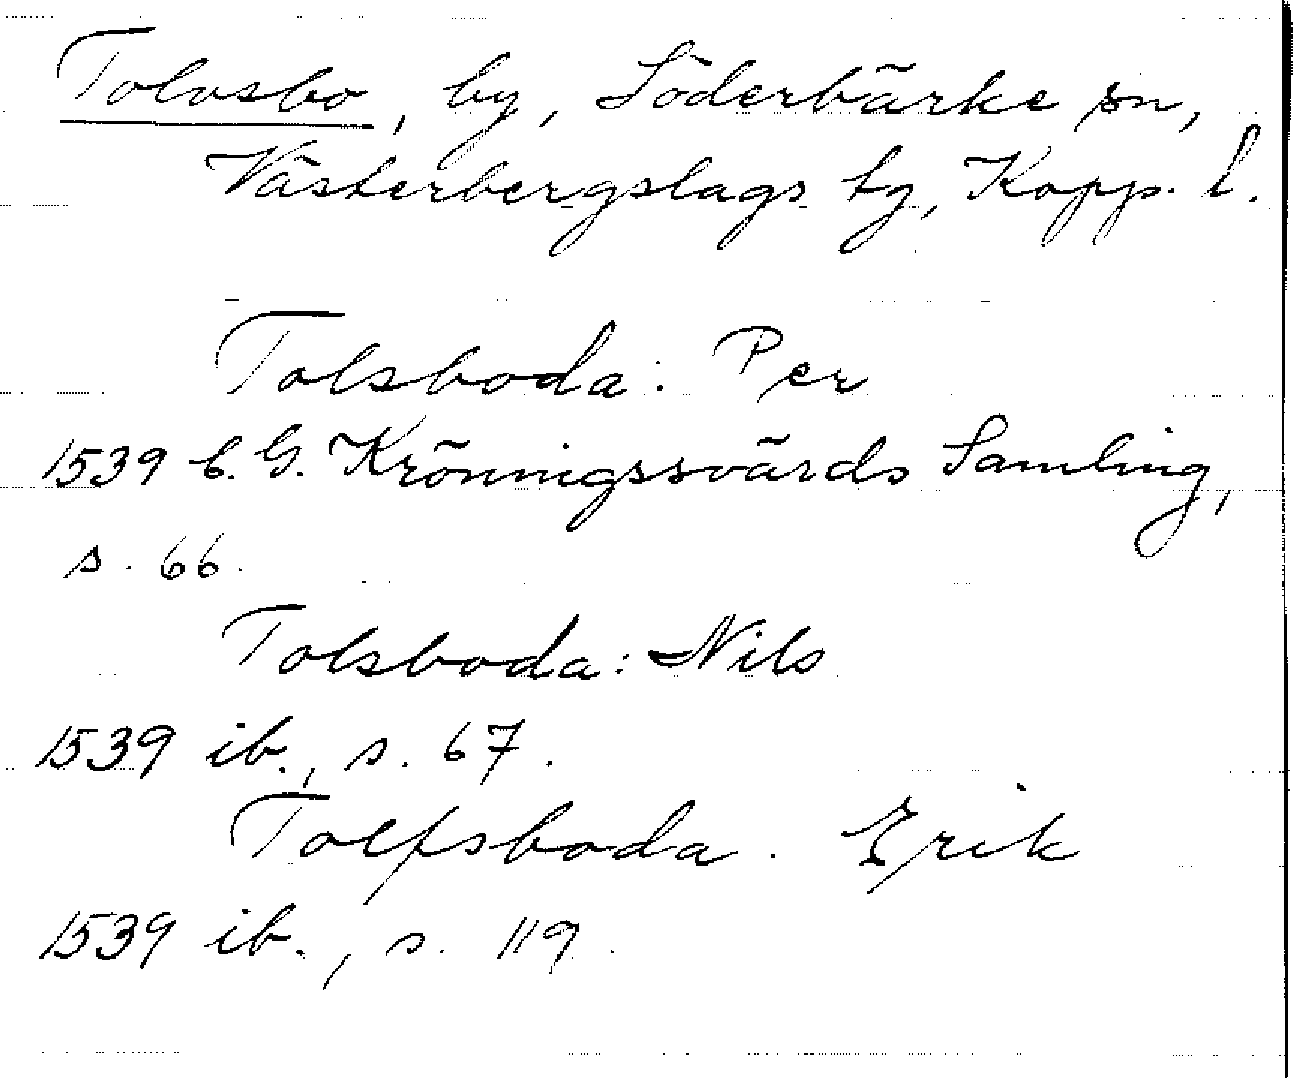 Tolvsbo, by, Söderbärke sn,
Västerbergslags tg, Kopp. l.
Tolsboda: Per
1539 C. G. Kröningssvärds Samling,
s. 66.
Tolsboda: Nils
1539 ib., s. 67.
Tolfsboda. Erik
1539 ib., s. 119.